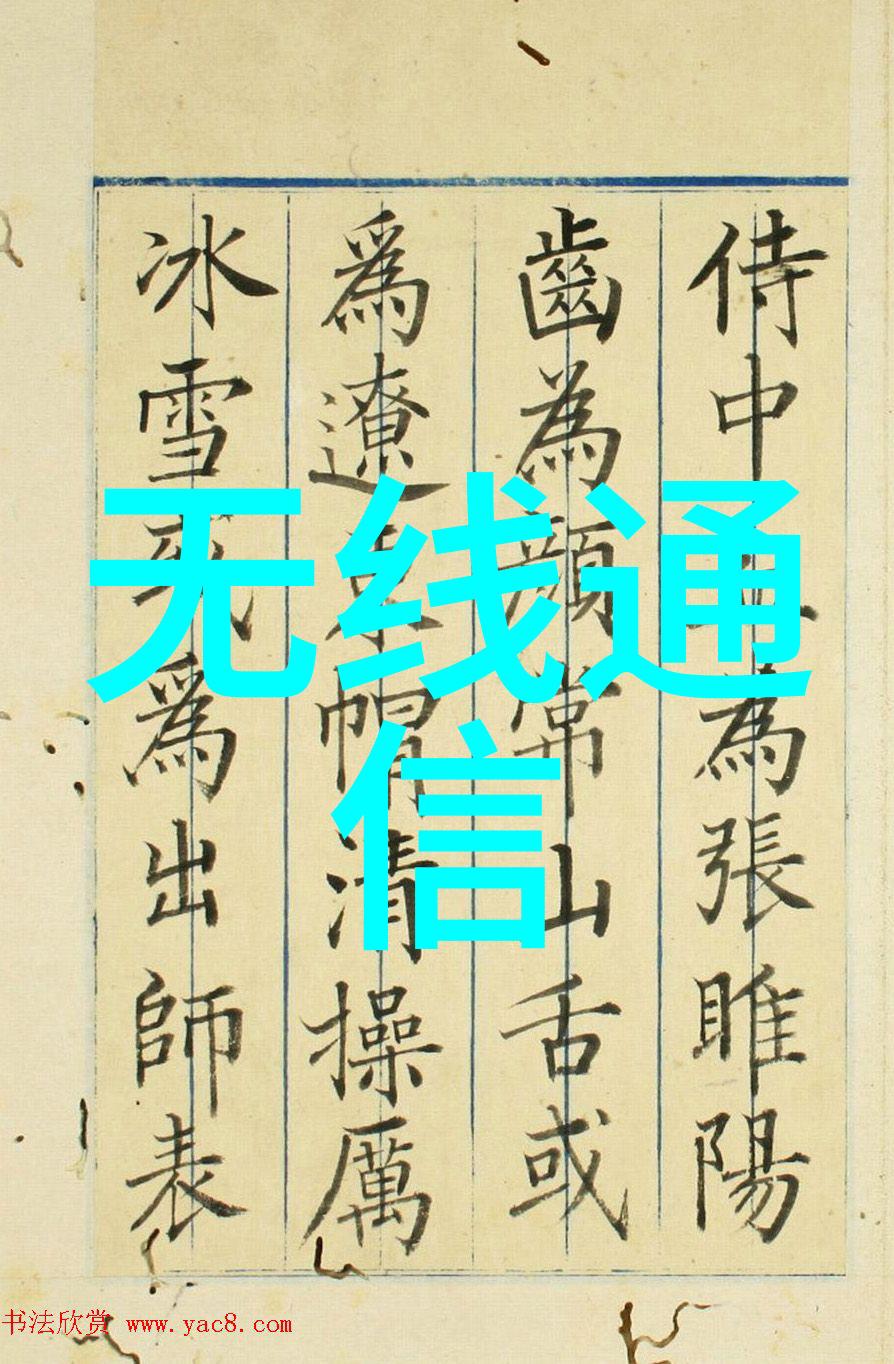 侍中為張睢陽
齒為顔常山舌或
爲遼東帽清操厲
冰雪或爲出師表
无线通
信
书法欣赏 www.yac8.com